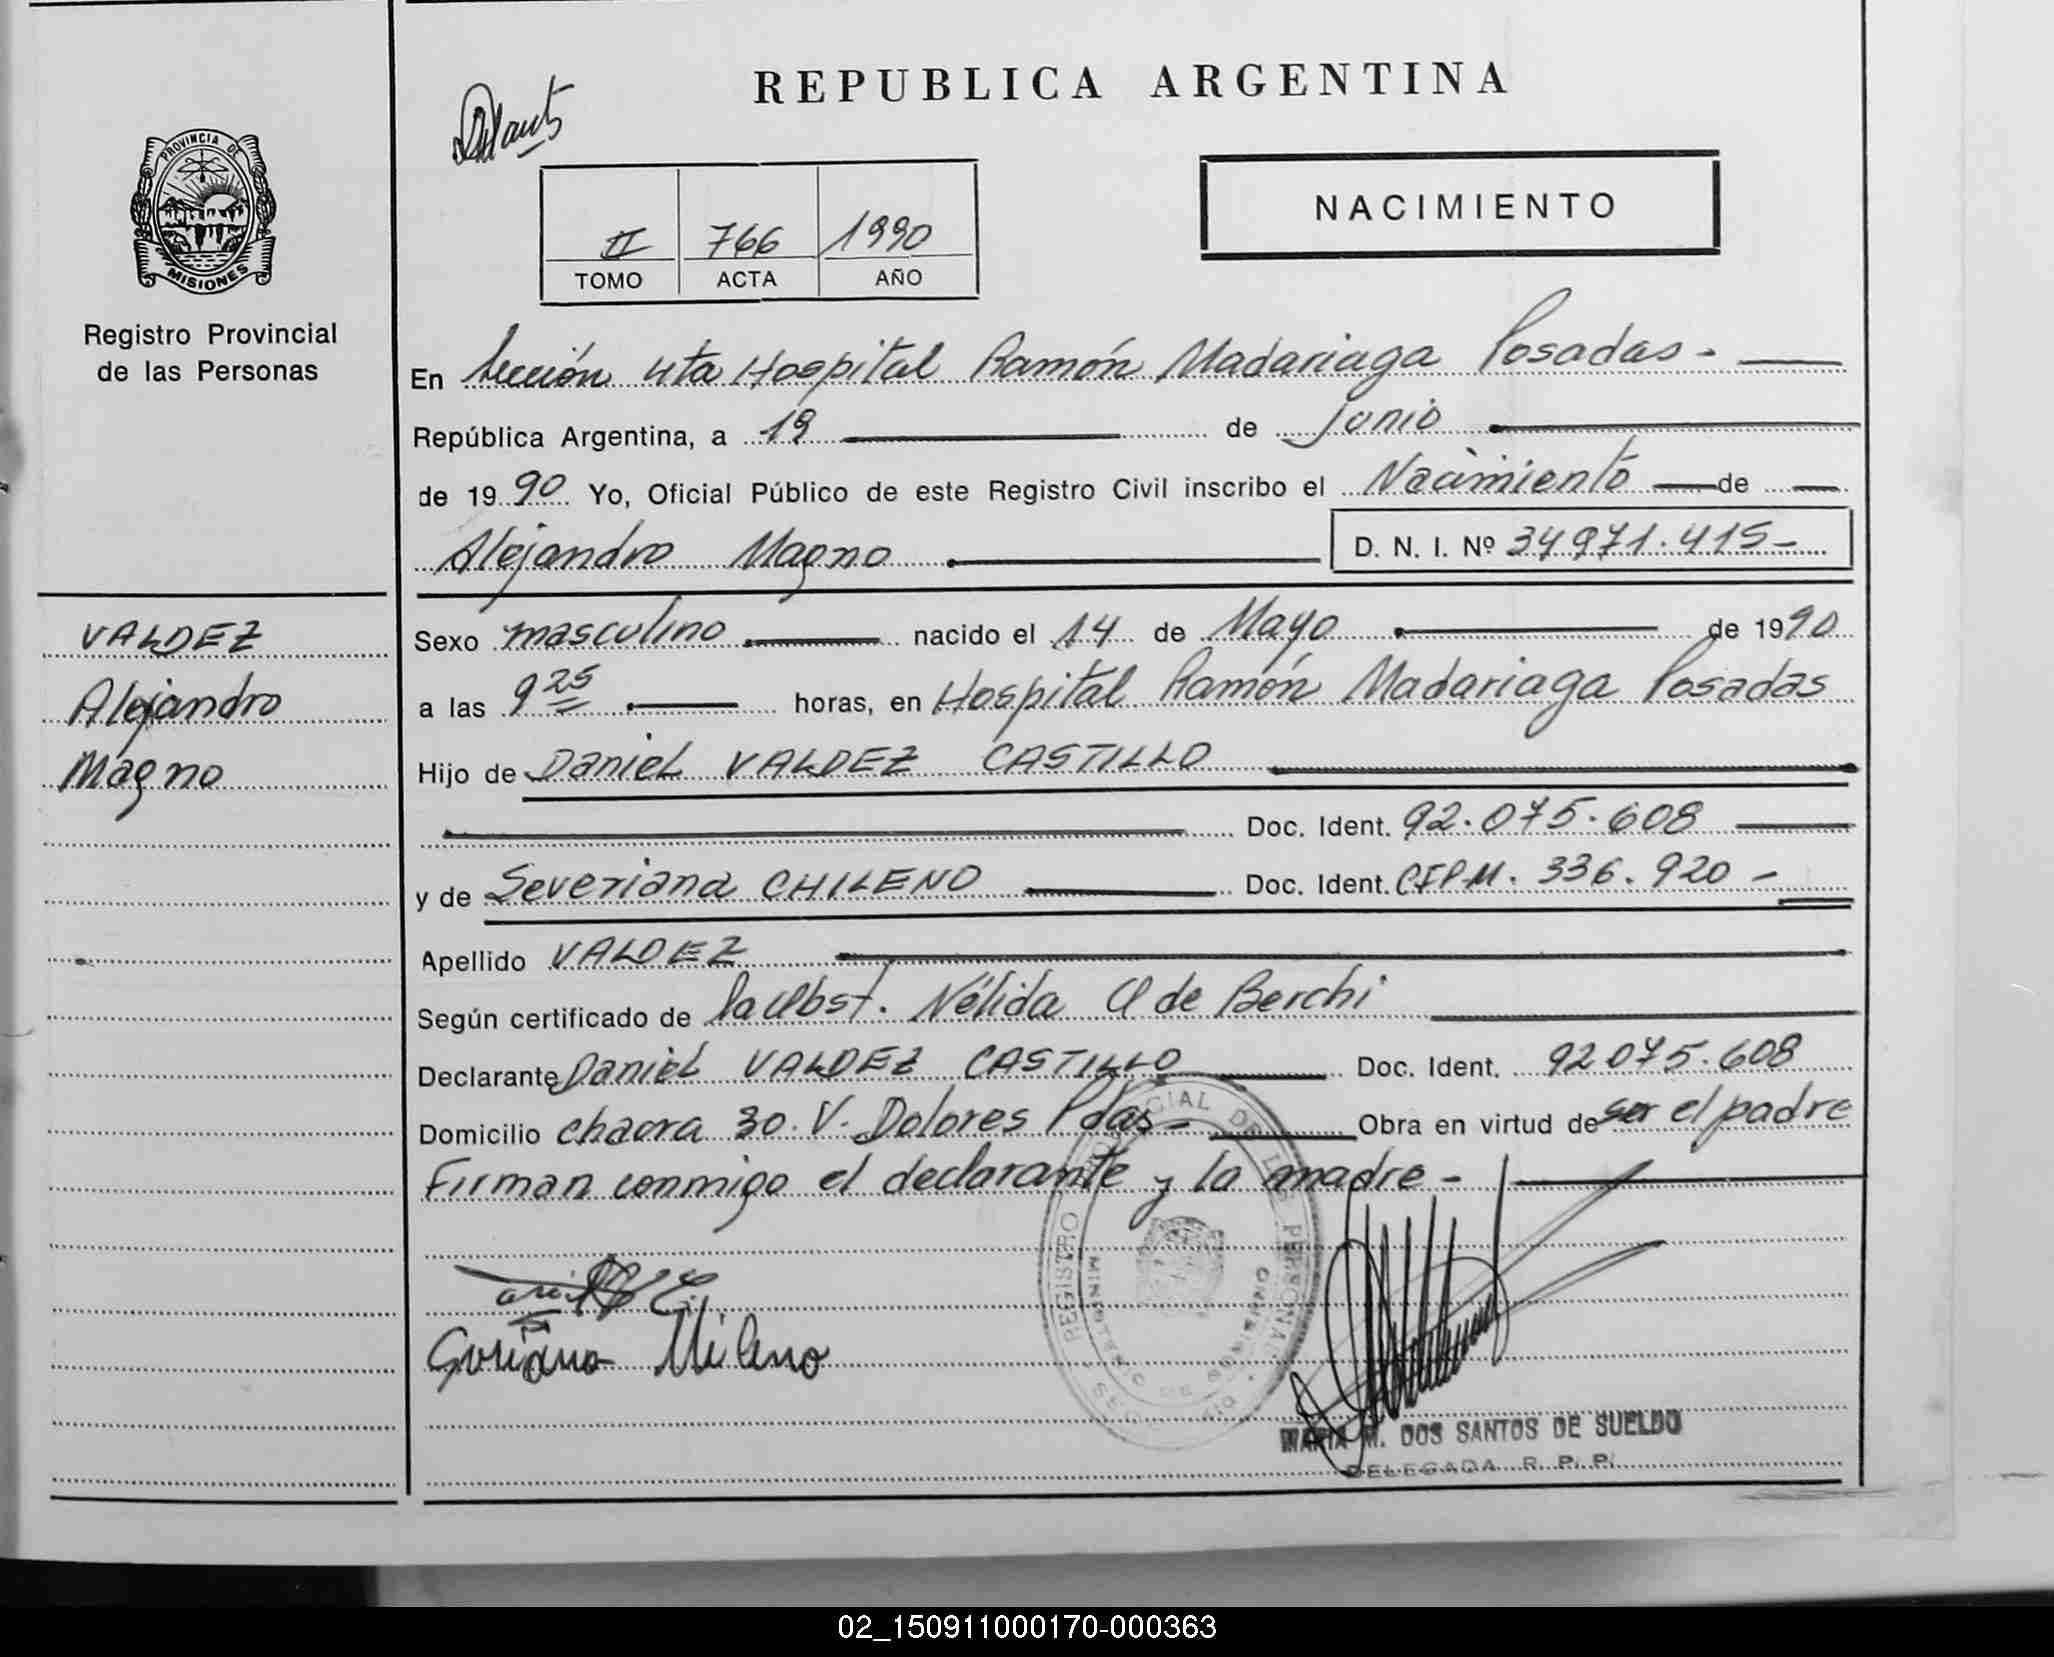 REPUBLICA ARGENTINA
PROVINCIA DE
MISIONES
Registro Provincial
de las Personas
II 766 1990
TOMO ACTA AÑO
NACIMIENTO
En Sección 4ta Hospital Ramón Madariaga Posadas -
República Argentina, a 19 de Junio
de 1990 Yo, Oficial Público de este Registro Civil inscribo el Nacimiento de
Alejandro Magno D. N. I. Nº 34971.415-
VALDEZ
Alejandro
Magno
Sexo masculino nacido el 14 de Mayo de 1990
a las 9 25 horas, en Hospital Ramón Madariaga Posadas
Hijo de Daniel VALDEZ CASTILLO
Doc. Ident. 92.075.608
y de Severiana CHILENO Doc. Ident. CIPM. 336.920 -
Apellido VALDEZ
Según certificado de la Obst. Nélida de Berchi
Declarante Daniel VALDEZ CASTILLO Doc. Ident. 92075.608
Domicilio chacra 30. V. Dolores Pdas - Obra en virtud de ser el padre
Firman conmigo el declarante y la madre -
REGISTRO PROVINCIAL DE LAS PERSONAS
MINISTERIO DE GOBIERNO
MARIA M. DOS SANTOS DE SUELDO
DELEGADA R. P. P.
02_150911000170-000363